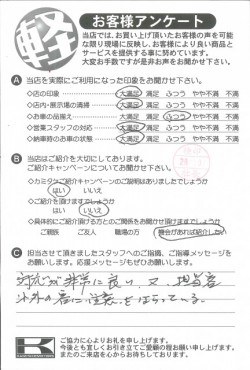 軽
お客様アンケート
当店では、お買い上げ頂いたお客様の声を可能
な限り現場に反映し、お客様により良い商品と
サービスを提供する事に努めています。
大変お手数ですが是非お声をお聞かせ下さい。
A 当店を実際にご利用になった印象をお聞かせ下さい。
◇店の印象 大満足 満足 ふつう やや不満 不満
◇店内・展示場の清掃 大満足 満足 ふつう やや不満 不満
◇お車の品揃え 大満足 満足 ふつう やや不満 不満
◇営業スタッフの対応 大満足 満足 ふつう やや不満 不満
◇納車時のお車の状態 大満足 満足 ふつう やや不満 不満
B 当店はご紹介を大切にしております。
ご紹介キャンペーンについてお聞かせ下さい。
◇カミタケご紹介キャンペーンのご説明はありましたでしょうか
はい いいえ
◇ご紹介を頂けますでしょうか
はい いいえ
◇具体的にご紹介頂ける方とのご関係をお聞かせ頂けますでしょうか
ご親族 ご友人 職場の方 機会があれば紹介したい
C 担当させて頂きましたスタッフへのご指摘、ご指導メッセージを
お願いします。応援メッセージもぜひお願いします。
対応が非常に良い。又、担当者
以外の者に注意をはらっている。
K
ご協力に心よりお礼を申し上げます。
今後とも宜しくお引き立てご愛顧の程お願い申し上げます。
またのご来店を心からお待ちしております。